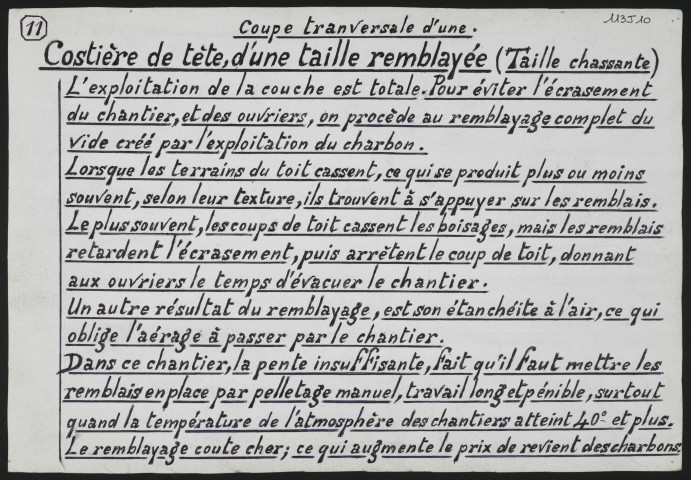 11
113J10
Coupe tranversale d'une.
Costière de tète, d'une taille remblayée (Taille chassante)
L'exploitation de la couche est totale. Pour éviter l'écrasement
du chantier, et des ouvriers, on procède au remblayage complet du
vide créé par l'exploitation du charbon.
Lorsque les terrains du toit cassent, ce qui se produit plus ou moins
souvent, selon leur texture, ils trouvent à s'appuyer sur les remblais.
Le plus souvent, les coups de toit cassent les boisages, mais les remblais
retardent l'écrasement, puis arrêtent le coup de toit, donnant
aux ouvriers le temps d'évacuer le chantier.
Un autre résultat du remblayage, est son étanchéite à l'air, ce qui
oblige l'aérage à passer par le chantier.
Dans ce chantier, la pente insuffisante, fait qu'il faut mettre les
remblais en place par pelletage manuel, travail long et pénible, surtout
quand la température de l'atmosphère des chantiers atteint 40° et plus.
Le remblayage coute cher; ce qui augmente le prix de revient des charbons.